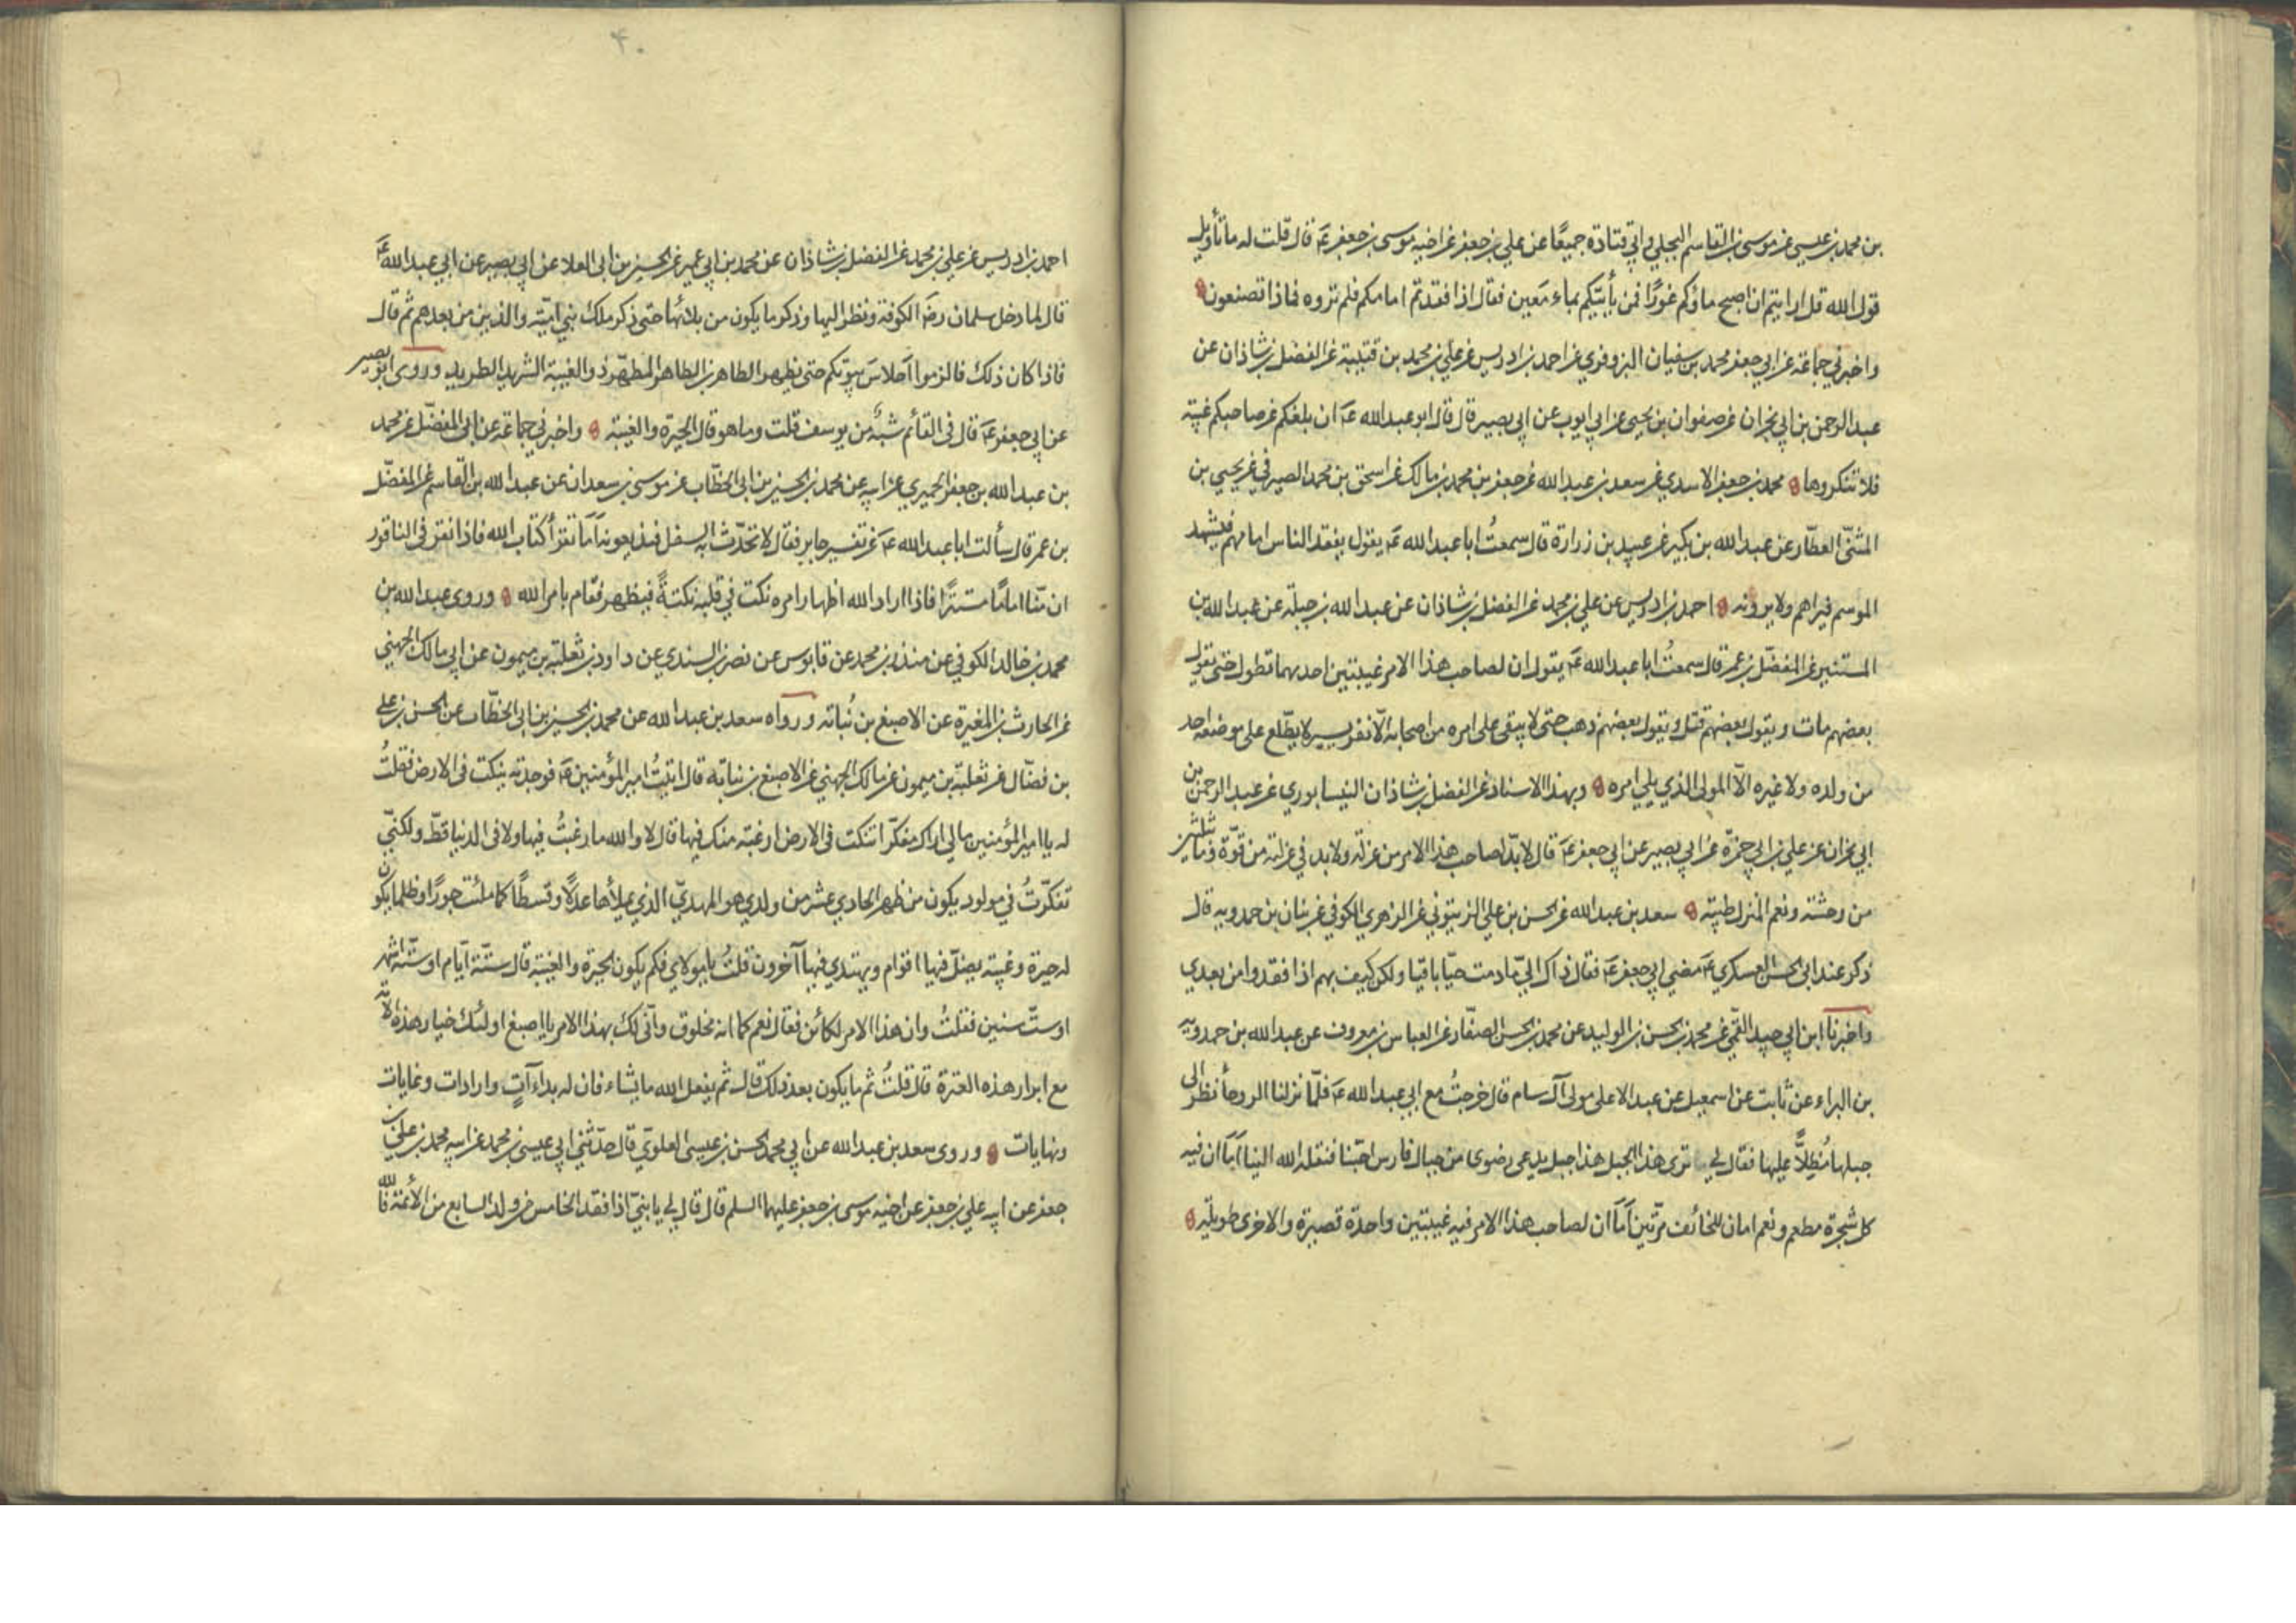 بن محمد بن عيسى عن موسى بن القاسم البجلي وابي قتادة جميعًا عن علي بن جعفر عن اخيه موسى بن جعفر عۤ قال قلت له ما تأويل
قول الله قل ارايتم ان اصبح ماؤكم غورًا فمن يأتيكم بماء مَعين فقال اذا فقدتم امامكم فلم تروه فماذا تصنعون
واخبرني جماعة عن ابي جعفر محمد بن سفيان البزوفري عن احمد بن ادريس عن علي بن محمد بن قتيبة عن الفضل بن شاذان عن
عبد الرحمن بن ابي نجران عن صفوان بن يحيى عن ابي ايوب عن ابي بصير قال قال ابو عبد الله عۤ ان بلغكم عن صاحبكم غيبة
فلا تنكروها محمد بن جعفر الاسدي عن سعد بن عبد الله عن جعفر بن محمد بن مالك عن اسحق بن محمد الصيرفي عن يحيى بن
المثنّى العطّار عن عبد الله بن بكير عن عبيد بن زرارة قال سمعتُ ابا عبد الله عۤ يقول يفقد الناس امامهم فيشهد
الموسم فيراهم ولا يرونه احمد بن ادريس عن علي بن محمد عن الفضل بن شاذان عن عبد الله بن جبلة عن عبد الله بن
المستنير عن المفضّل بن عمر قال سمعتُ ابا عبد الله عۤ يقول ان لصاحب هذا الامر غيبتين احديهما تطول حتى يقول
بعضهم مات ويقول بعضهم قتل ويقول بعضهم ذهب حتى لا يبقى على امره من اصحابه الّا نفر يسير لا يطّلع على موضعه احد
من ولده ولا غيره الّا المولى الذي يلي امره وبهذا الاسناد عن الفضل بن شاذان النيسابوري عن عبد الرحمن بن
ابي نجران عن علي بن ابي حمزة عن ابي بصير عن ابي جعفر عۤ قال لا بدّ لصاحب هذا الامر من عزلة ولا بد في عزلته من قوّة وما بثلثين
من وحشة ونعم المنزل طيبة سعد بن عبد الله عن الحسن بن علي الزيتوني عن الزهري الكوفي عن بنان بن حمدويه قال
ذكر عند ابي الحسن العسكري عۤ مضي ابي جعفر عۤ فقال ذاك الىّ ما دمت حيّا باقيا ولكن كيف بهم اذا فقدوا من بعدي
واخبرنا ابن ابي جيد القمّي عن محمد بن الحسن بن الوليد عن محمد بن الحسن الصفّار عن العباس بن معروف عن عبد الله بن حمدويه
بن البراء عن ثابت عن اسمعيل عن عبد الاعلى مولى آل سام قال خرجتُ مع ابي عبد الله عۤ فلمّا نزلنا الروحأ نظر الى
جبلها مُطِلًّا عليها فقال لي ترى هذا الجبل هذا جبل يدعى رضوى من جبال فارس احبّنا فنقله الله الينا اَمَا ان فيه
كل شجرة مطعم ونعم امان للخائف مرّتين اَمَا ان لصاحب هذا الامر فيه غيبتين واحدة قصيرة والاخرى طويلة
۴۰
احمد بن ادريس عن علي بن محمد عن الفضل بن شاذان عن محمد بن ابي عمير عن الحسين بن ابي العلا عن ابي بصير عن ابي عبد الله عۤ
قال لما دخل سلمان رضۤ الكوفة ونظر اليها وذكر ما يكون من بلائها حتى ذكر ملك بني اميّة والذين من بعدهم ثم قال
فاذا كان ذلك فالزموا اَحلاسَ بيوتكم حتى يظهر الطاهر بن الطاهر المطهّر ذو الغيبة الشريد الطريد وروى ابو بصير
عن ابي جعفر عۤ قال في القائم شبهٌ من يوسف قلت وما هو قال الحيرة والغيبة واخبرني جماعة عن ابي المفضّل عن محمد
بن عبد الله بن جعفر الحميري عن ابيه عن محمد بن الحسين بن ابي الخطّاب عن موسى بن سعدان عن عبد الله بن القاسم عن المفضّل
بن عمر قال سألت ابا عبد الله عۤ عن تفسير جابر فقال لا تحدّث به السفل فيذيعونه اَمَا تقرأ كتاب الله فاذا نقر في الناقور
ان منّا امامًا مستترًا فاذا اراد الله اظهار امره نكت في قلبه نكتةً فيظهر فقام بامر الله وروى عبد الله بن
محمد بن خالد الكوفي عن منذر بن محمد عن قابوس عن نصر بن السندي عن داود بن ثعلبة بن ميمون عن ابي مالك الجهني
عن الحارث بن المغيرة عن الاصبغ بن نُباته ورواه سعد بن عبد الله عن محمد بن الحسين بن ابي الخطّاب عن الحسن بن علي
بن فضّال عن ثعلبة بن ميمون عن مالك الجهني عن الاصبغ بن نباتة قال اتيتُ امير المؤمنين عۤ فوجدته ينكت في الارض فقلتُ
له يا امير المؤمنين مالي اراك مفكّرا تنكت في الارض ارغبة منك فيها قال لا والله ما رغبتُ فيها ولا في الدنيا قطّ ولكنّي
تفكّرتُ في مولود يكون من ظهر الحادي عشر من ولدي هو المهديّ الذي يملأها عدلًا وقسطًا كما ملئت جورًا وظلما يكون
له حيرة وغيبة يضلّ فيها اقوام ويهتدي فيها آخرون قلتُ يا مولاي فكم يكون الحيرة والغيبة قال ستّة ايّام او ستّة اشهر
او ستّ سنين فقلتُ وان هذا الامر لكائن فقال نعم كما انه مخلوق وأنّى لك بهذا الامر يا اصبغ اولئك خيار هذه الامّة
مع ابرار هذه العترة قال قلتُ ثم ما يكون بعد ذلك قال ثم يفعل الله ما يشاء فان له بداءآتٍ وارادات وغايات
ونهايات وروى سعد بن عبد الله عن ابي محمد الحسن بن عيسى العلويّ قال حدّثني ابي عيسى بن محمد عن ابيه محمد بن علي بن
جعفر عن ابيه علي بن جعفر عن اخيه موسى بن جعفر عليهما السلم قال قال لي يا بنيّ اذا فقد الخامس من ولد السابع من الأئمة فالله